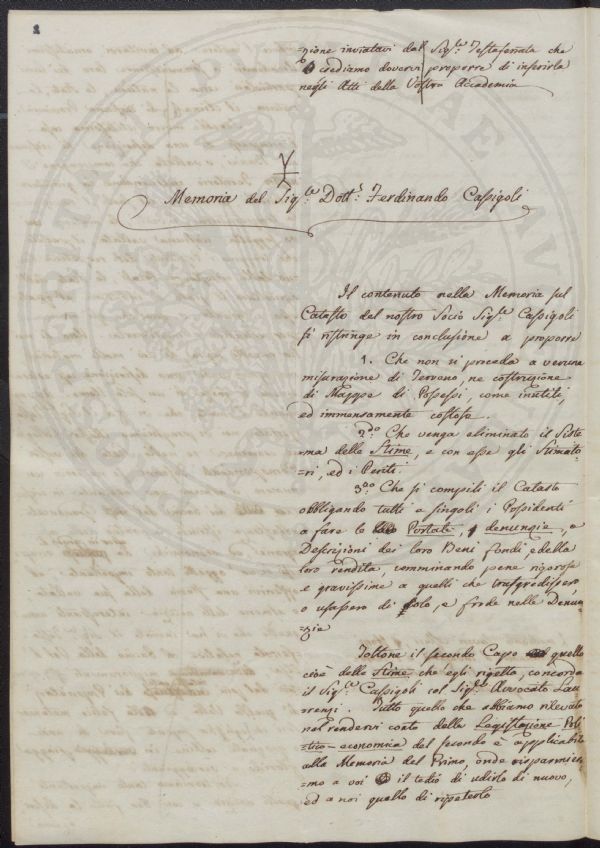 =zione inviatavi dal Sigr.e Testaferrata che
crediamo dovervi proporre di inserirla
negli Atti della Vostra Accademia
Memoria del Sigr.e Dott.r Ferdinando Cassigoli
Il contenuto nella Memoria sul
Catasto del nostro Socio Sigr.e Cassigoli
si ristringe in conclusione a proporre
1. Che non si proceda a veruna
misurazione di Terreno, ne costruzione
di Mappe di Possessi, come inutile,
ed immensamente costosa.
2.do Che venga eliminato il Siste=
=ma delle Stime, e con esse gli Stimato=
=ri, ed i Periti.
3.zo Che si compili il Catasto
obbligando tutti e singoli i Possidenti
a fare le Portate, denunzie, e
Descrizioni dei loro Beni fondi, e della
loro rendita, comminando pene rigorose
e gravissime a quelli che trasgredissero,
o usassero di dolo, e frode nelle Denun=
=zie
Toltone il secondo Capo quello
cioè delle Stime, ch'egli rigetta, concorda
il Sigr.e Cassigoli col Sigr.e Avvocato Lau
renzi. Tutto quello che abbiamo rilevato
nel rendervi conto della Legislazione Poli
=tico-economica del secondo è applicabile
alla Memoria del Primo, onde risparmie=
=mo a voi il tedio di udirlo di nuovo,
ed a noi quello di ripeterlo